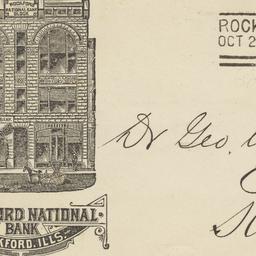 ROCKFORD
NATIONAL BANK
BLOCK
ROCK
OCT 2
BANK
Dr Geo.
RD NATIONAL
BANK
KFORD, ILLS.